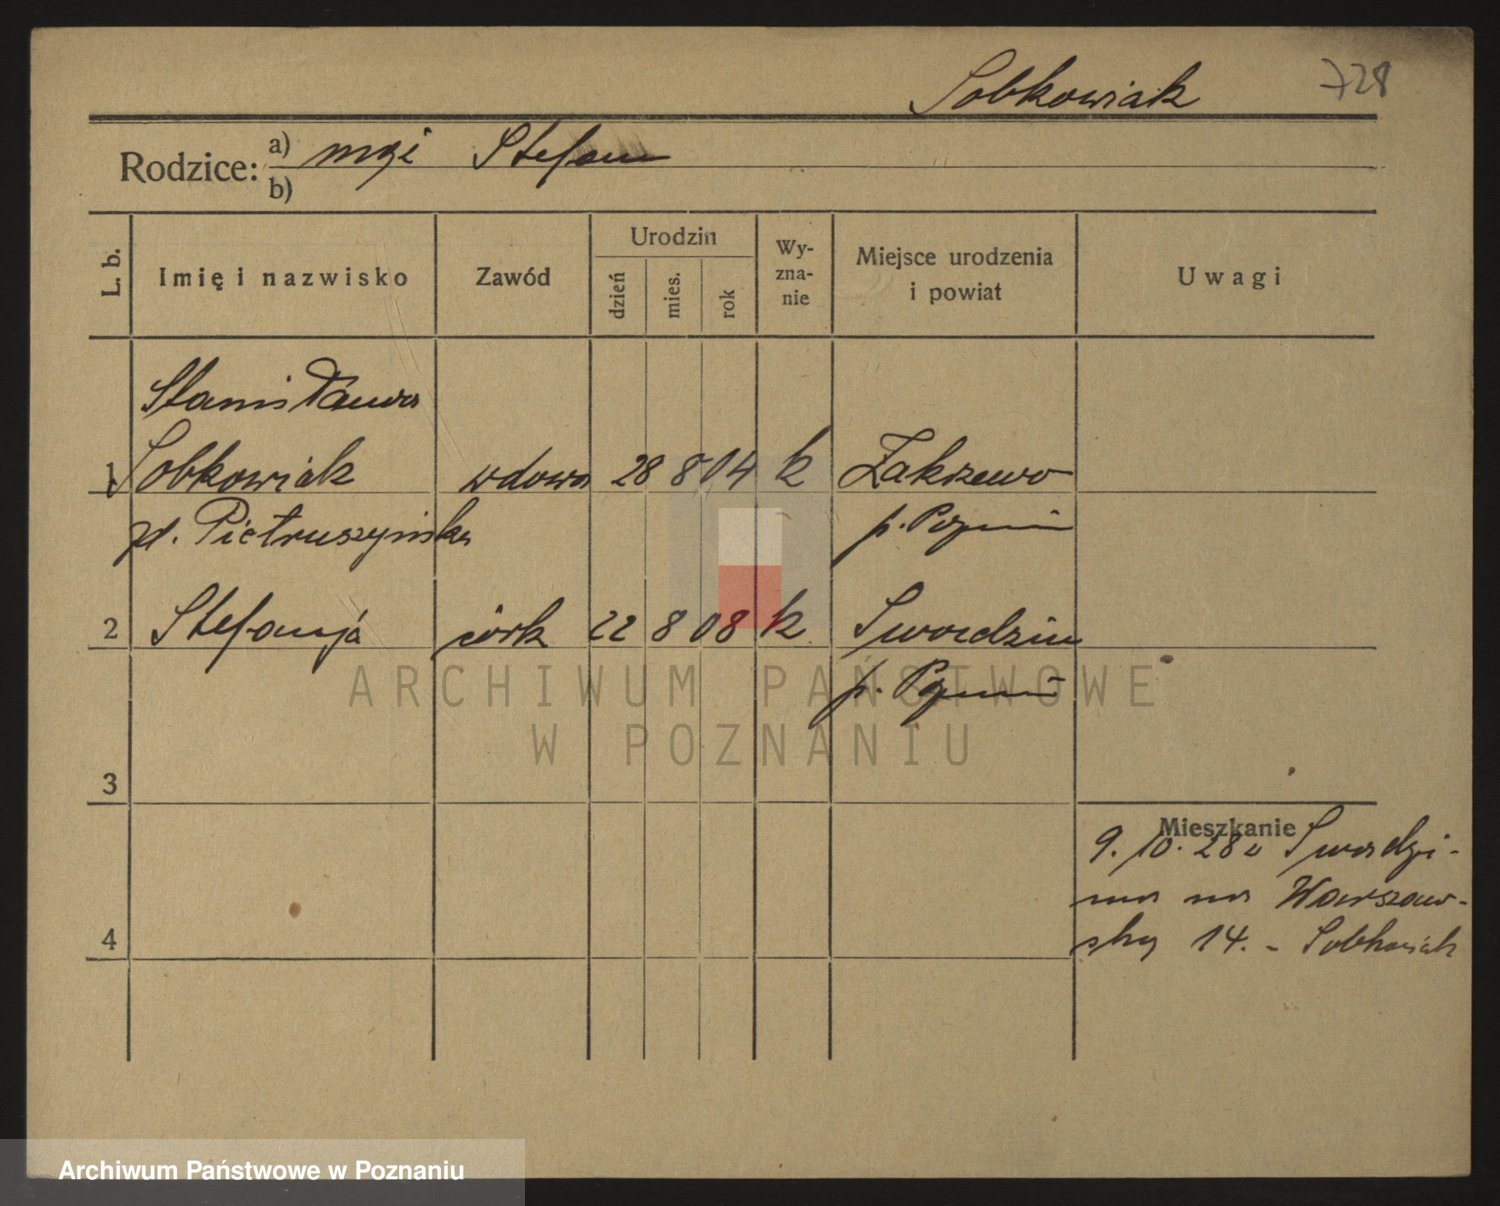 Sobkowiak 728
Rodzice: a) mąż Stefan
b)
L. b. Imię i nazwisko Zawód Urodzin dzień mies. rok Wy-zna-nie Miejsce urodzenia i powiat Uwagi
Stanisława
1 Sobkowiak wdowa 28 8 04 k Zakrzewo
zd. Pietruszyńska p. Poznań
2 Stefanja córk 22 8 08 k Swordzin
p. Poznań
3
Mieszkanie
9. 10. 28 z Swardzi-
na na Warszaw-
ską 14. - Sobkowiak
4
ARCHIWUM PAŃSTWOWE
W POZNANIU
Archiwum Państwowe w Poznaniu